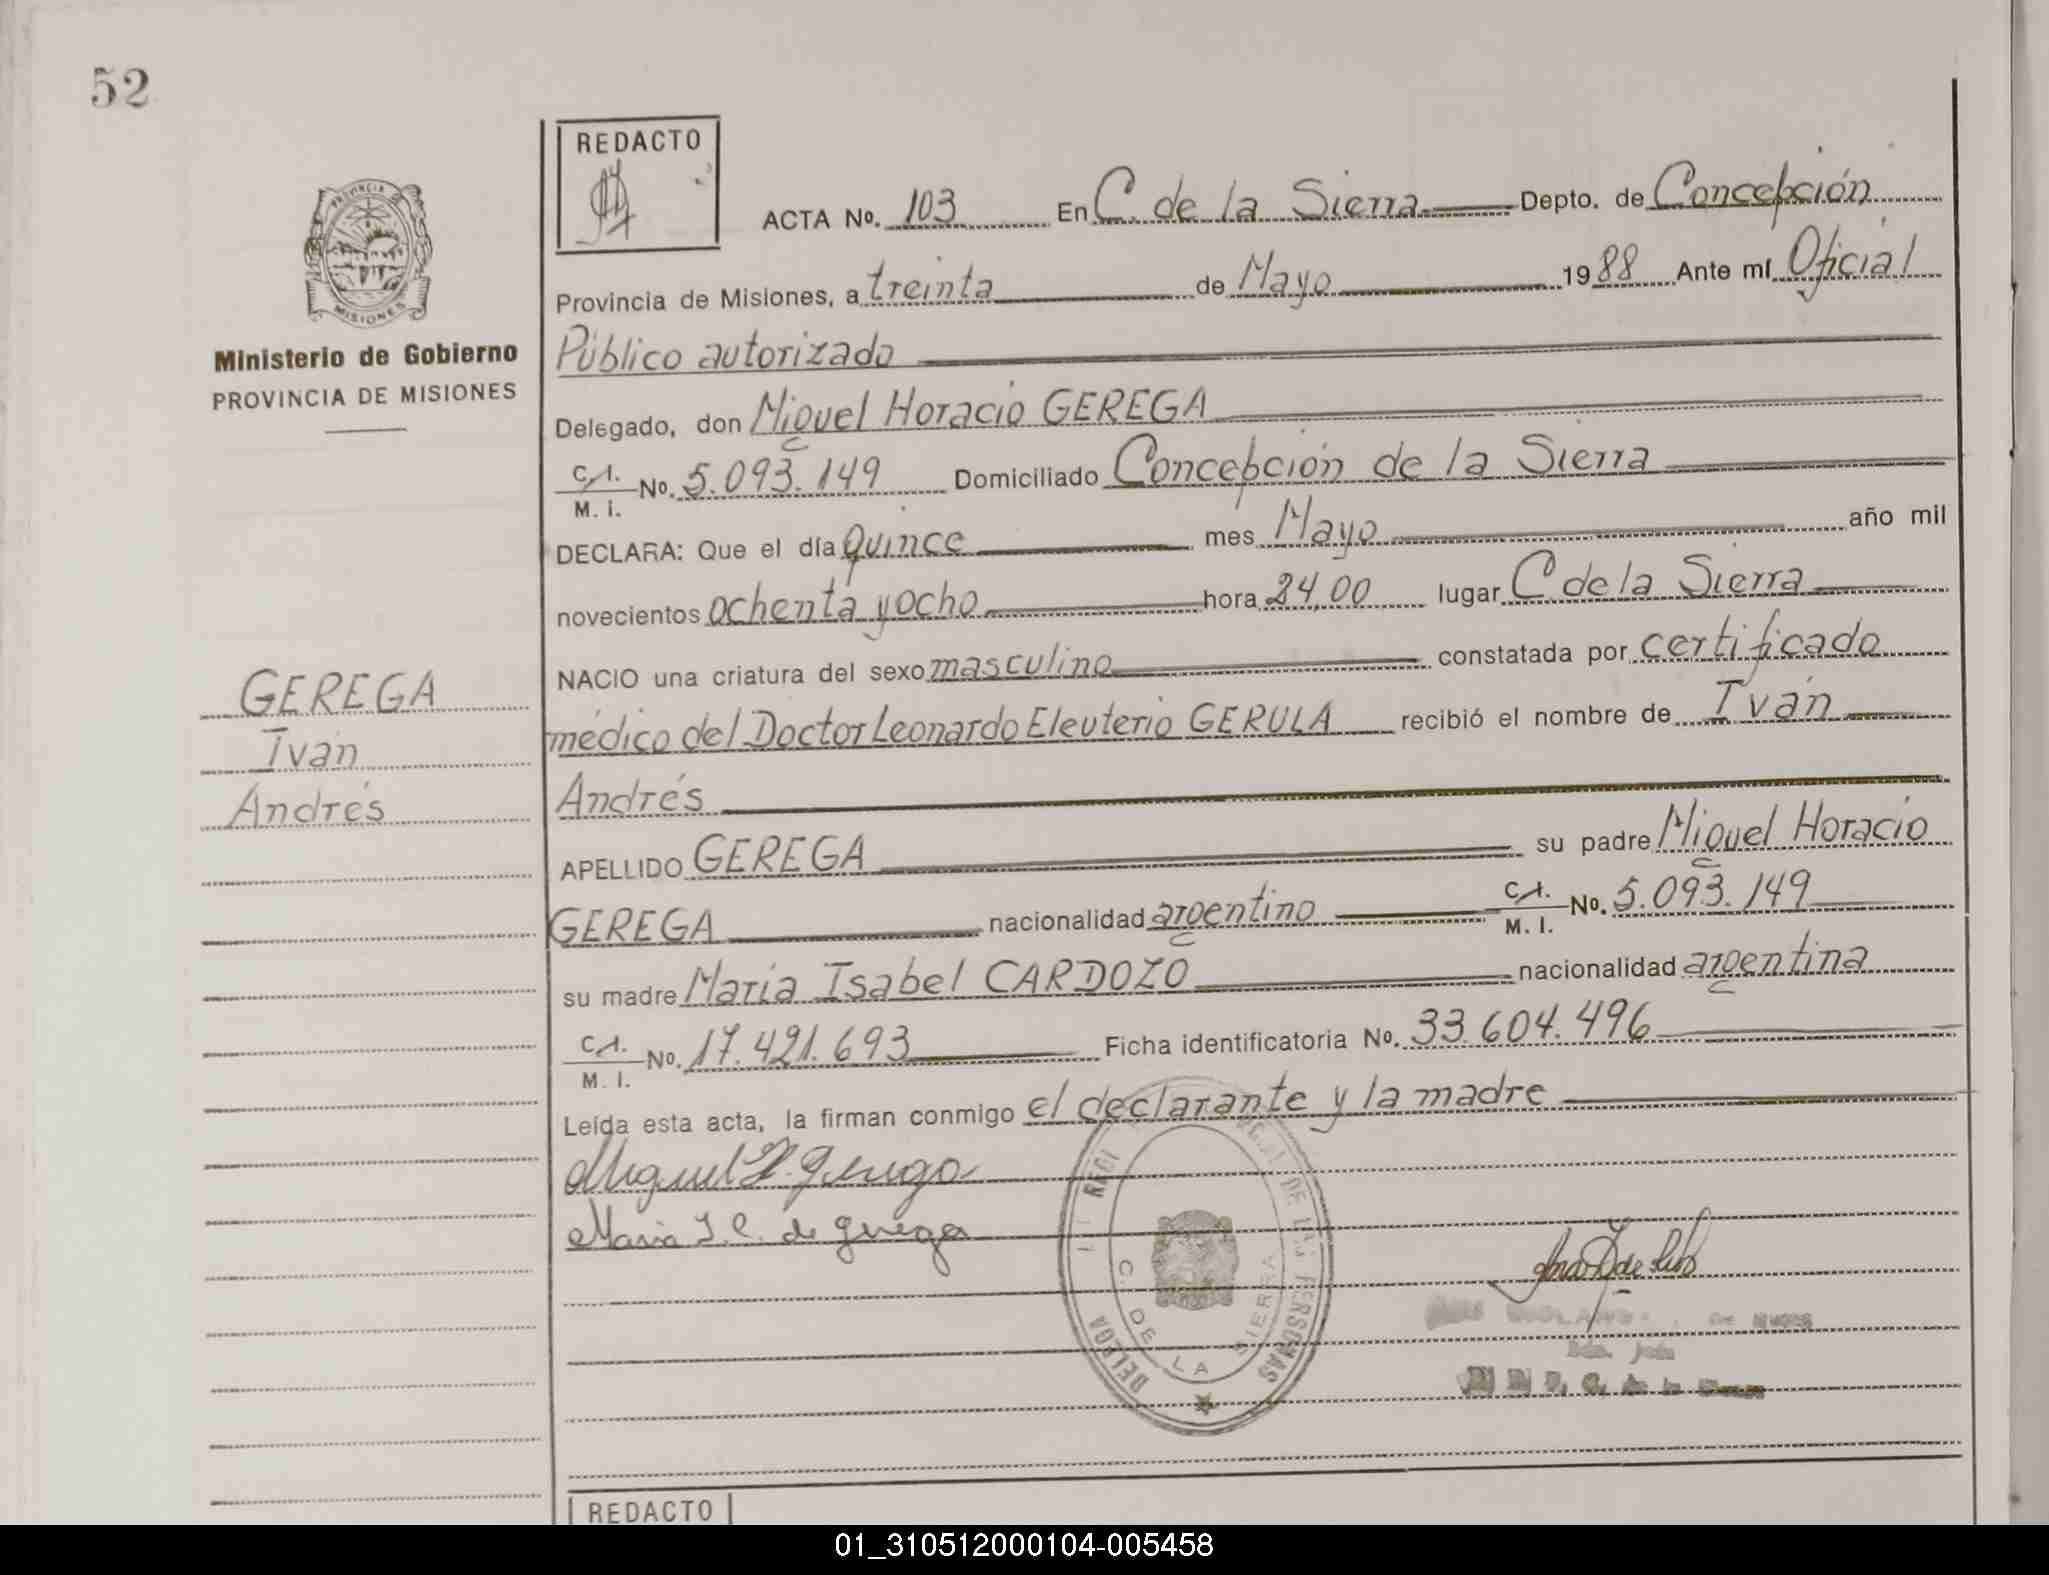 52
REDACTO
ACTA No. 103 En C. de la Sierra Depto. de Concepción
Provincia de Misiones, a treinta de Mayo 1988 Ante mí Oficial
Público autorizado
Delegado, don Miguel Horacio GEREGA
C.I. No. 5.093.149 Domiciliado Concepción de la Sierra
M. I.
DECLARA: Que el día quince mes Mayo año mil
novecientos ochenta y ocho hora 24,00 lugar C de la Sierra
NACIO una criatura del sexo masculino constatada por certificado
médico del Doctor Leonardo Eleuterio GERULA recibió el nombre de Iván
Andrés
APELLIDO GEREGA su padre Miguel Horacio
GEREGA nacionalidad argentino C.I. No. 5.093.149
M. I.
su madre María Isabel CARDOZO nacionalidad argentina
C.I. No. 17.421.693 Ficha identificatoria No. 33.604.496
M. I.
Leída esta acta, la firman conmigo el declarante y la madre
Miguel H. Gerega
María I. C. de Gerega
PROVINCIA DE MISIONES
Ministerio de Gobierno
PROVINCIA DE MISIONES
GEREGA
Iván
Andrés
DE LAS PERSONAS
C. DE LA SIERRA
REDACTO
01_310512000104-005458